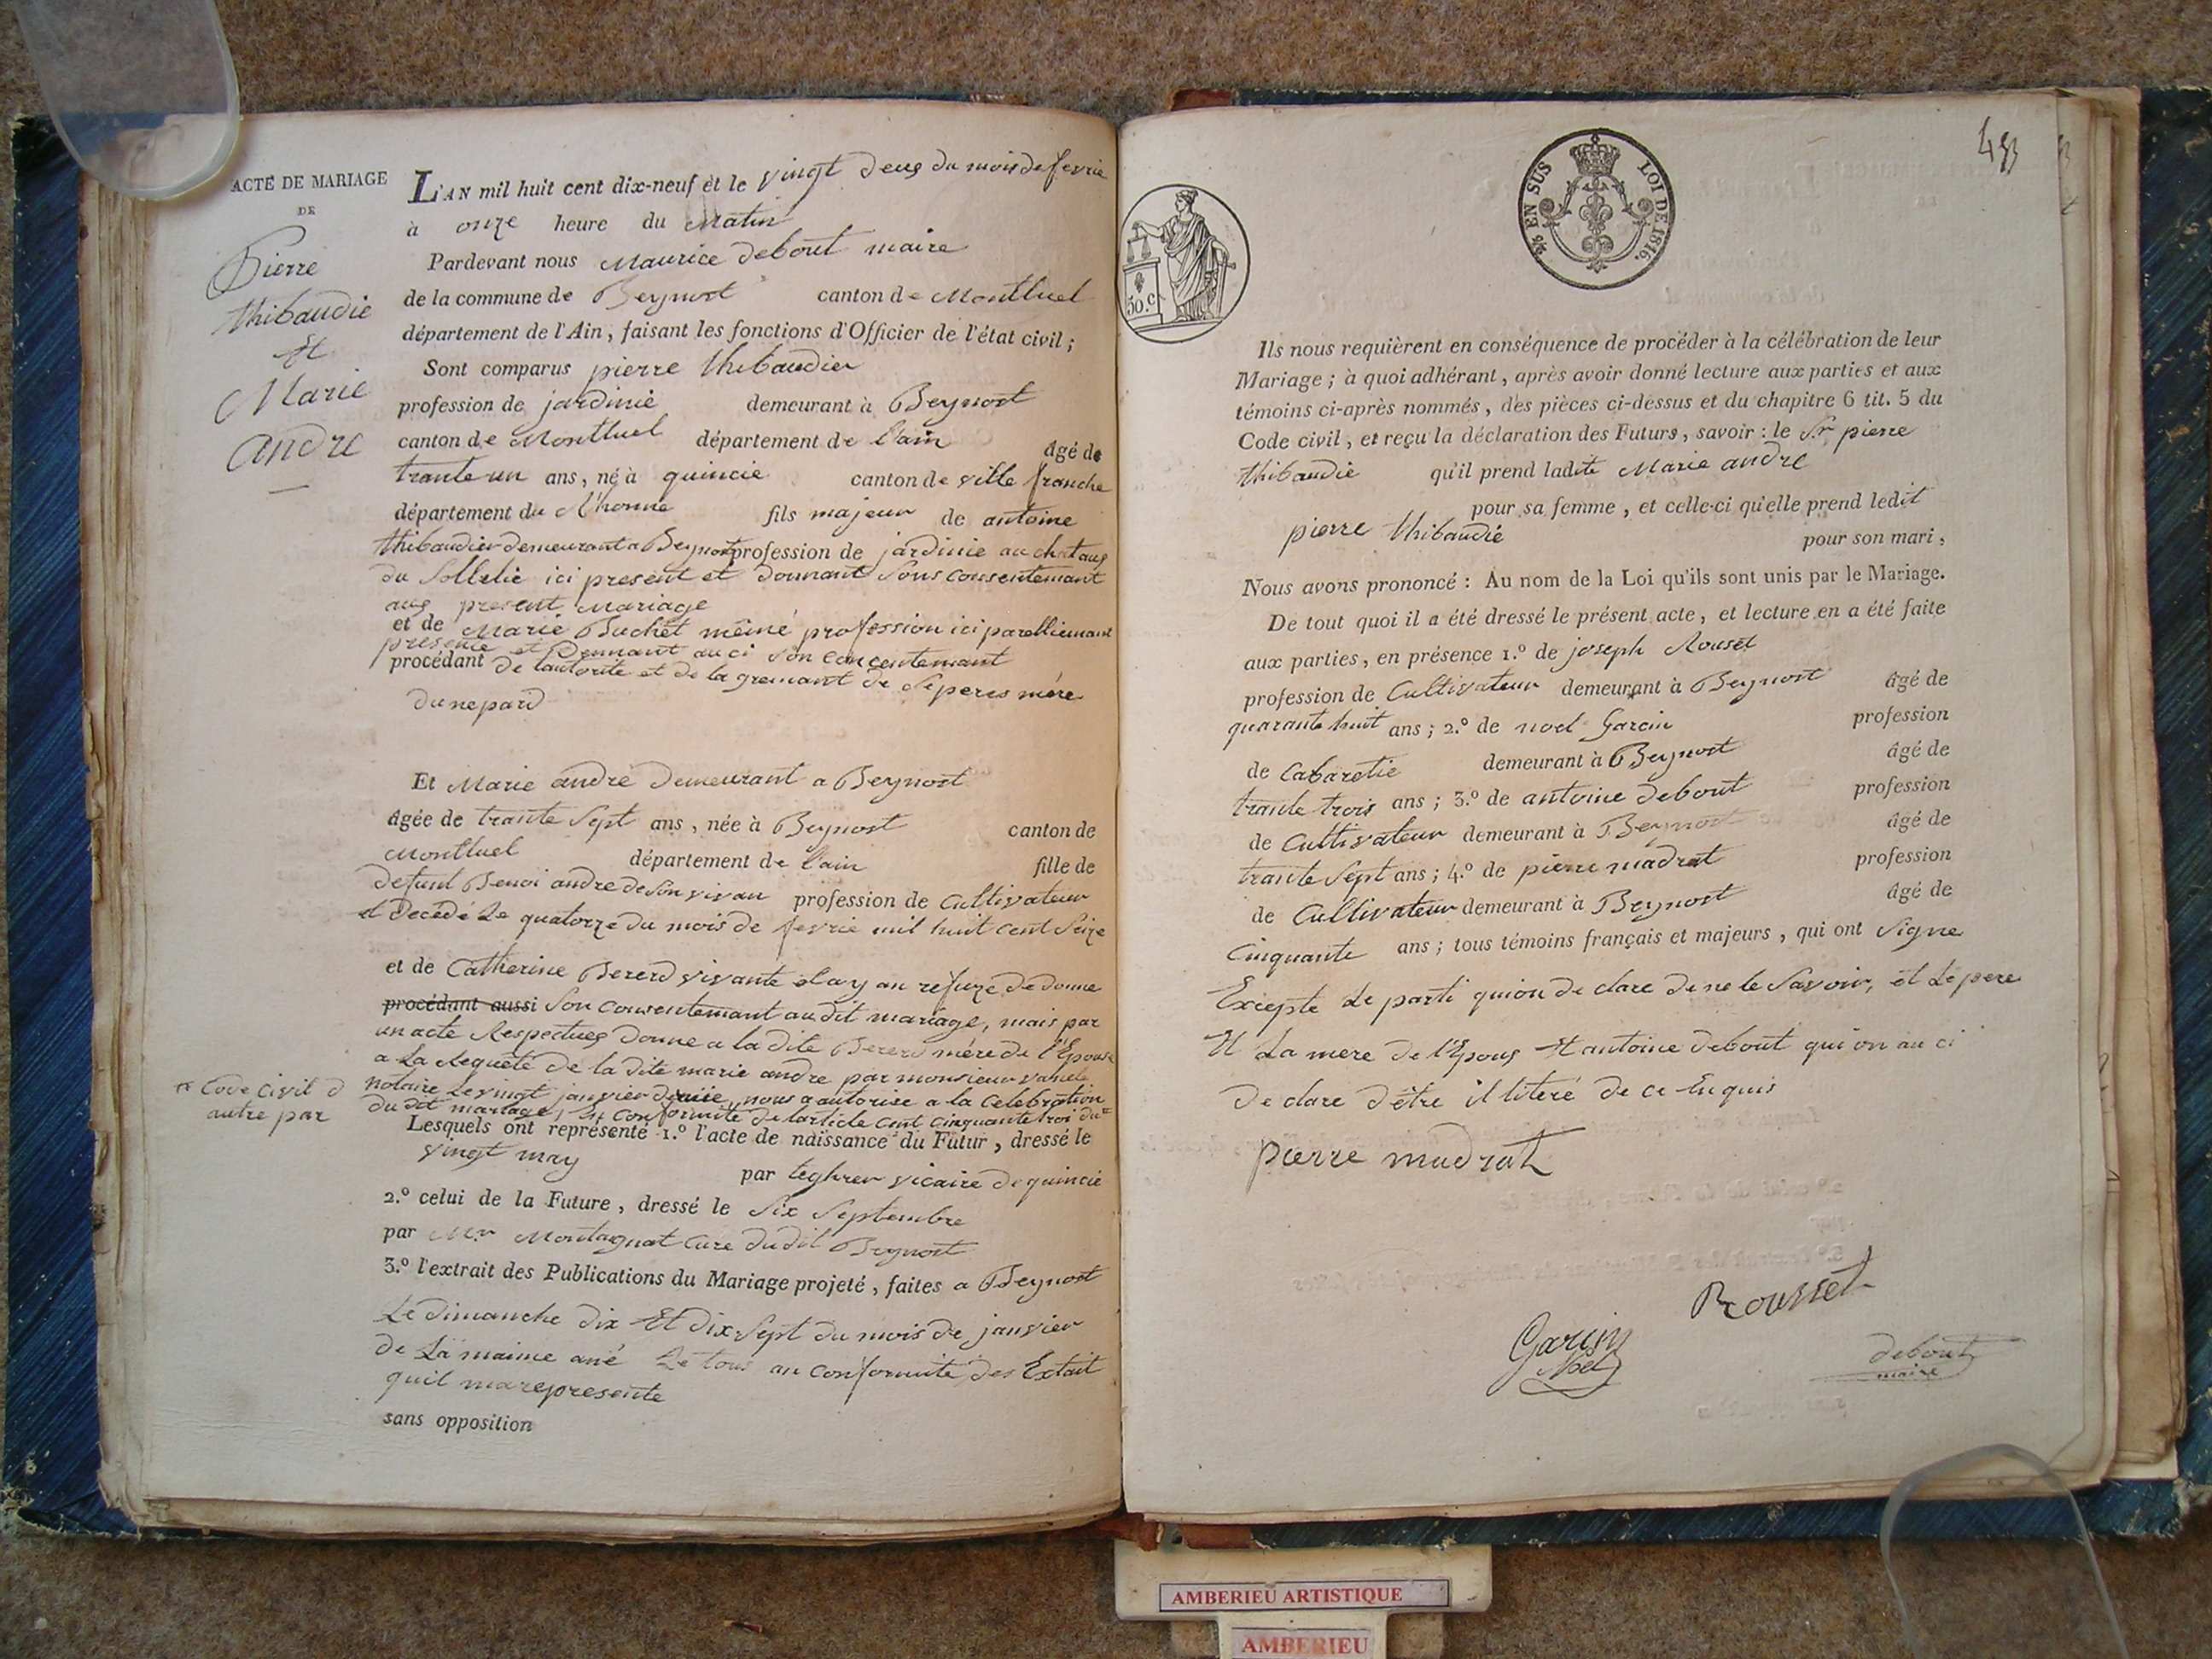 ACTE DE MARIAGE
DE
Pierre
thibaudie
et
Marie
andre
L'AN mil huit cent dix-neuf et le vingt deus du mois de fevrie
à onze heure du Matin
Pardevant nous Maurice debout maire
de la commune de Beynost canton de Montluel
département de l'Ain, faisant les fonctions d'Officier de l'état civil;
Sont comparus pierre thibaudier
profession de jardinié demeurant à Beynost
canton de Montluel département de l'ain âgé de
trante un ans, né à quincie canton de ville franche
département du Rhonne fils majeur de antoine
thibaudier demeurant a Beynost profession de jardinie au chataus
du Sollelie ici present et donnant Sons consentemant
aus present Mariage
et de Marie Buchet même profession ici parelliemant
presente et Donnant auci Son concentemant
procédant de lautorite et de la gremant de Se peres mére
dunepard
Et Marie andre demeurant a Beynost
âgée de trante Sept ans, née à Beynost canton de
Montluel département de l'ain fille de
defunt Benoi andre de Son vivan profession de Cultivateur
et decédé Le quatorze du mois de fevrie mil huit cent Seize
et de Catherine Bererd vivante elay an refuze de donne
procédant aussi Son consentemant au dit mariage, mais par
un acte Respectues donne a la dite Bererd mére de l'Epouse
a La Requete de la dite marie andre par monsieur
notaire Le vingt janvier dernie, nous a autorise a la Celebration
du dit mariage, en conformite de larticle cent cinquante troi du
Code Civil d
autre par
Lesquels ont représenté 1.º l'acte de naissance du Futur, dressé le
vingt may par teghrer vicaire de quincie
2.º celui de la Future, dressé le Six Septembre
par Mr Montagnat cure du dit Beynost
3.º l'extrait des Publications du Mariage projeté, faites a Beynost
Le dimanche dix Et dix Sept du mois de janvier
de La maime ané Le tous an conformité des Extait
quil ma represente
sans opposition
433
2/6 EN SUS LOI DE 1816.
50.c
Ils nous requièrent en conséquence de procéder à la célébration de leur
Mariage; à quoi adhérant, après avoir donné lecture aux parties et aux
témoins ci-après nommés, des pièces ci-dessus et du chapitre 6 tit. 5 du
Code civil, et reçu la déclaration des Futurs, savoir: le Sr pierre
thibaudie qu'il prend ladite Marie andre
pour sa femme, et celle-ci qu'elle prend ledit
pierre thibaudie pour son mari,
Nous avons prononcé: Au nom de la Loi qu'ils sont unis par le Mariage.
De tout quoi il a été dressé le présent acte, et lecture en a été faite
aux parties, en présence 1.º de joseph Rouset
profession de Cultivateur demeurant à Beynost âgé de
quarante huit ans; 2.º de noel Garcin profession
de Cabaretie demeurant à Beynost âgé de
trante trois ans; 3.º de antoine debout profession
de Cultivateur demeurant à Beynost âgé de
trante Sept ans; 4.º de pierre madrat profession
de Cultivateur demeurant à Beynost âgé de
Cinquante ans; tous témoins français et majeurs, qui ont Signe
Excepte Le parti quion de clare de ne le Savoir, et Le pere
Et La mere de l'Epous Et antoine debout qui on au ci
de clare d'être il literé de ce Enquis
pierre madrat
Rousset
Garcin
Noel
debout
maire
AMBERIEU ARTISTIQUE
AMBERIEU